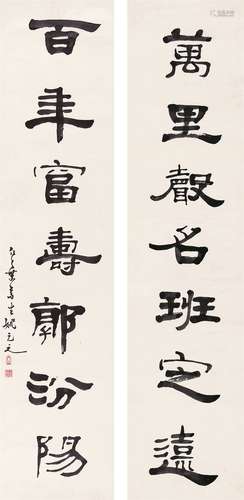 萬里聲名班定遠
百年富壽郭汾陽
姚元之